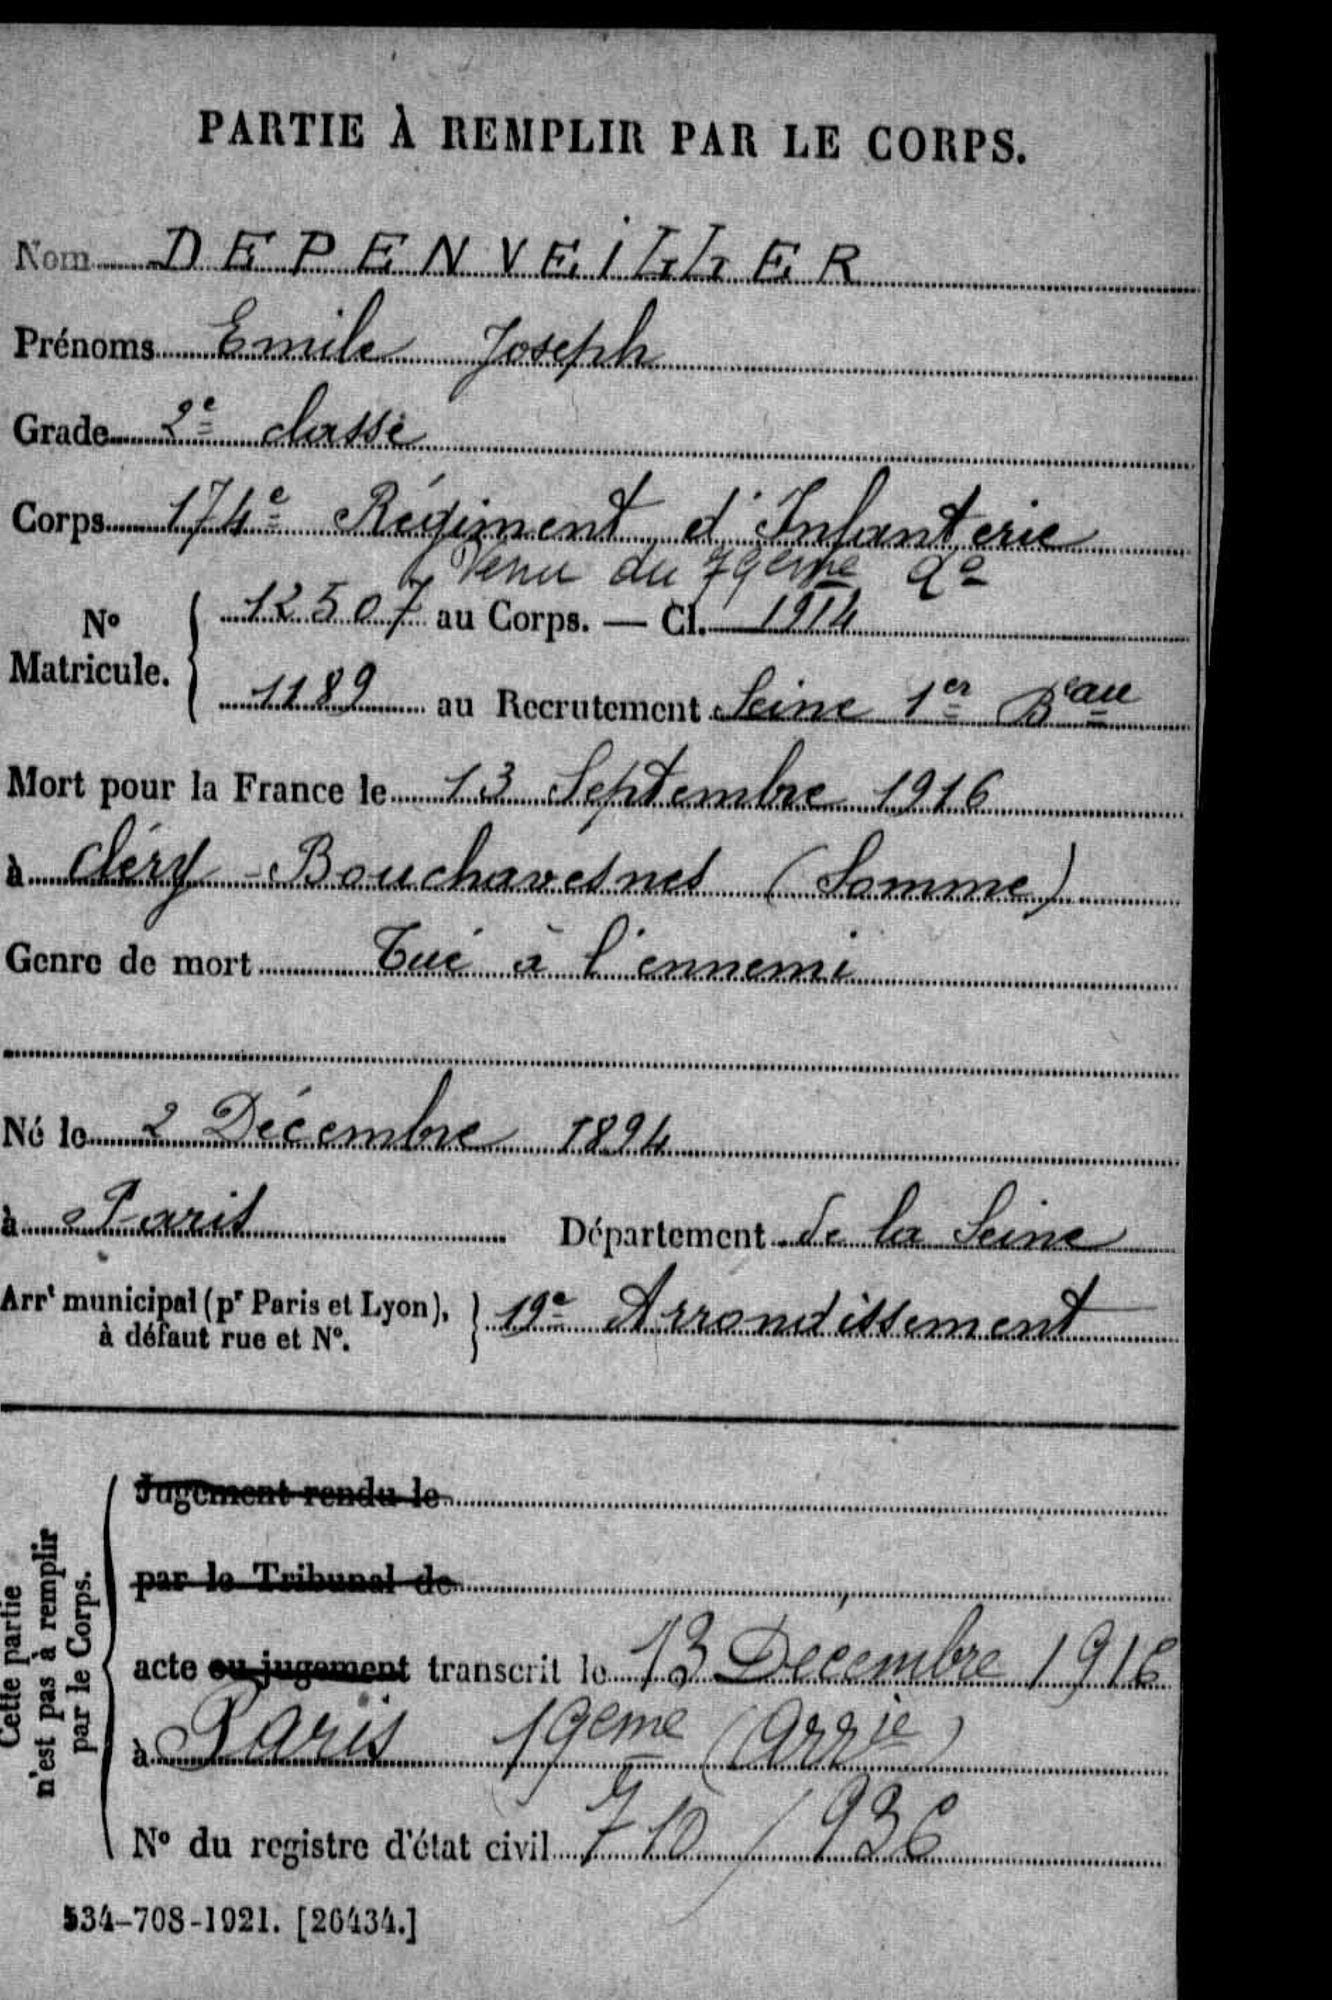 PARTIE À REMPLIR PAR LE CORPS.
Nom DEPENVEILLER
Prénoms Emile Joseph
Grade 2e classe
Corps 174e Régiment d'Infanterie
Venu du 79eme do
No Matricule. 12507 au Corps. — Cl. 1914
1189 au Recrutement Seine 1er Beau
Mort pour la France le 13 Septembre 1916
à Cléry-Bouchavesnes (Somme)
Genre de mort Tué à l'ennemi
Né le 2 Décembre 1894
à Paris Département de la Seine
Arrt municipal (pr Paris et Lyon), 19e Arrondissement
à défaut rue et No.
Cette partie
n'est pas à remplir
par le Corps.
Jugement rendu le
par le Tribunal de
acte ou jugement transcrit le 13 Decembre 1916
à Paris 19eme (arr)
No du registre d'état civil 710/936
534-708-1921. [26434.]